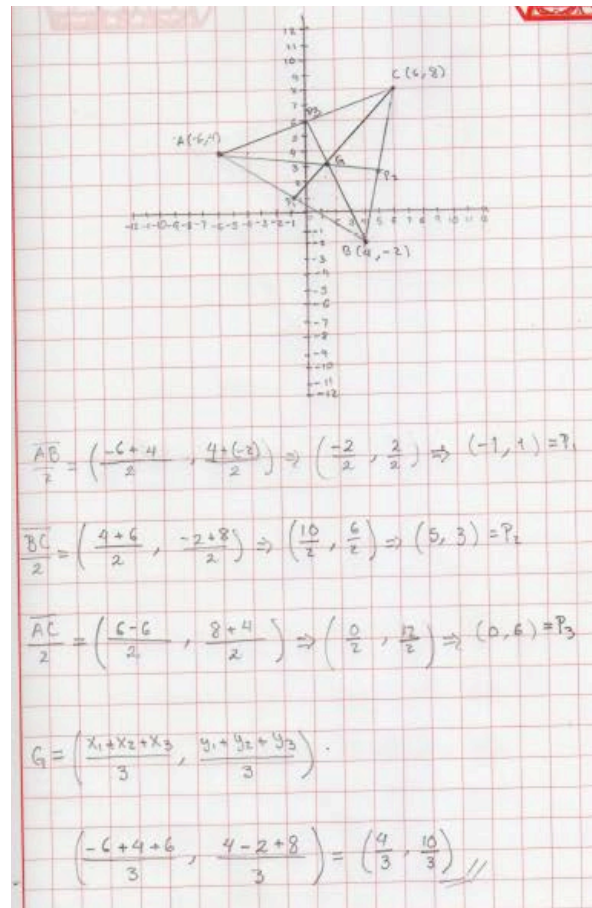 12
11
10
9
8
7
6
5
4
3
2
C (6,8)
P3
A(-6,4)
G
P2
P1
-12 -11 -10 -9 -8 -7 -6 -5 -4 -3 -2 -1 1 2 3 4 5 6 7 8 9 10 11 12
-1
-2
B(4,-2)
-3
-4
-5
-6
-7
-8
-9
-10
-11
-12
AB/2 = (-6+4/2 , 4+(-2)/2) ⇒ (-2/2 , 2/2) ⇒ (-1, 1) = P1
BC/2 = (4+6/2 , -2+8/2) ⇒ (10/2 , 6/2) ⇒ (5, 3) = P2
AC/2 = (6-6/2 , 8+4/2) ⇒ (0/2 , 12/2) ⇒ (0, 6) = P3
G = (x1+x2+x3/3 , y1+y2+y3/3) .
(-6+4+6/3 , 4-2+8/3) = (4/3 , 10/3) //